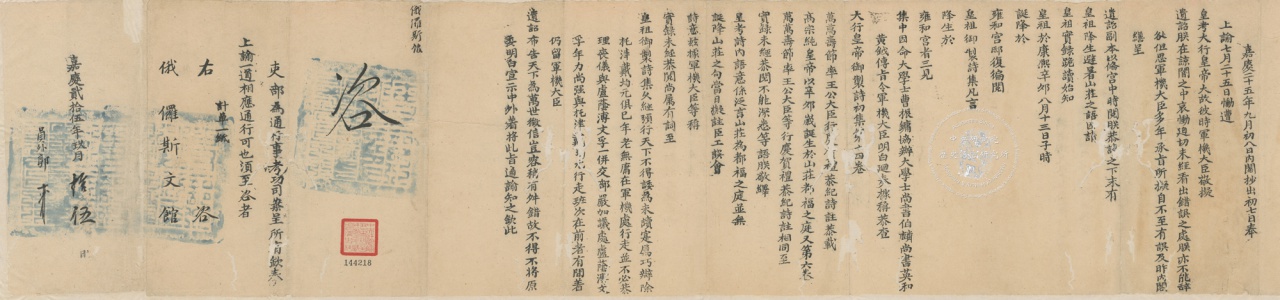 嘉慶二十五年九月初八日內閣抄出初七日奉
上諭七月二十五日慟遭
皇考大行皇帝大故彼時軍機大臣敬擬
遺詔朕在諒闇之中哀慟迫切未經看出錯誤之處朕亦不能辭
咎但思軍機大臣多年承旨所擬自不至有誤及昨內閣
繕呈
遺詔副本以備宮中時閱朕恭讀之下末有
皇祖降生避暑山莊之語因請
皇祖實錄跪讀始知
皇祖於康熙辛卯八月十三日子時
誕降於
雍和宮邸復徧閱
皇祖御製詩集凡言
降生於
雍和宮者三見
集中因命大學士曹振鏞協辦大學士尚書伯麟尚書英和
黃鉞傳旨令軍機大臣明白迴奏據稱恭查
大行皇帝御製詩初集第十四卷
萬萬壽節率王公大臣行慶賀禮恭紀詩註恭載
高宗純皇帝以辛卯歲誕生於山莊都福之庭又第六卷
萬萬壽節率王公大臣等行慶賀禮恭紀詩註相同至
實錄未經恭閱不能深悉等語朕敬繹
皇考詩內語意係泛言山莊為都福之庭並無
誕降山莊之句當日擬註臣工誤會
詩意茲據軍機大臣等稱
實錄未經恭閱尚屬有詞至
皇祖御製詩集久經頒行天下不得諉為未讀實屬巧辯除
托津戴均元俱已年老毋庸在軍機處行走並不必恭
理喪儀與盧蔭溥文孚一併交部嚴加議處盧蔭溥文
孚年力尚強與托津戴均元行走班次在前者有間著
仍留軍機大臣
遺詔布告天下為萬世徵信豈容稍有舛錯故不得不將原
委明白宣示中外著將此旨通諭知之欽此
咨
144218
吏部為通行事考功司案呈所有欽奉
上諭一道相應通行可也須至咨者
計單一紙
右咨
俄儸斯文館
嘉慶貳拾伍年玖月拾伍
員外郎